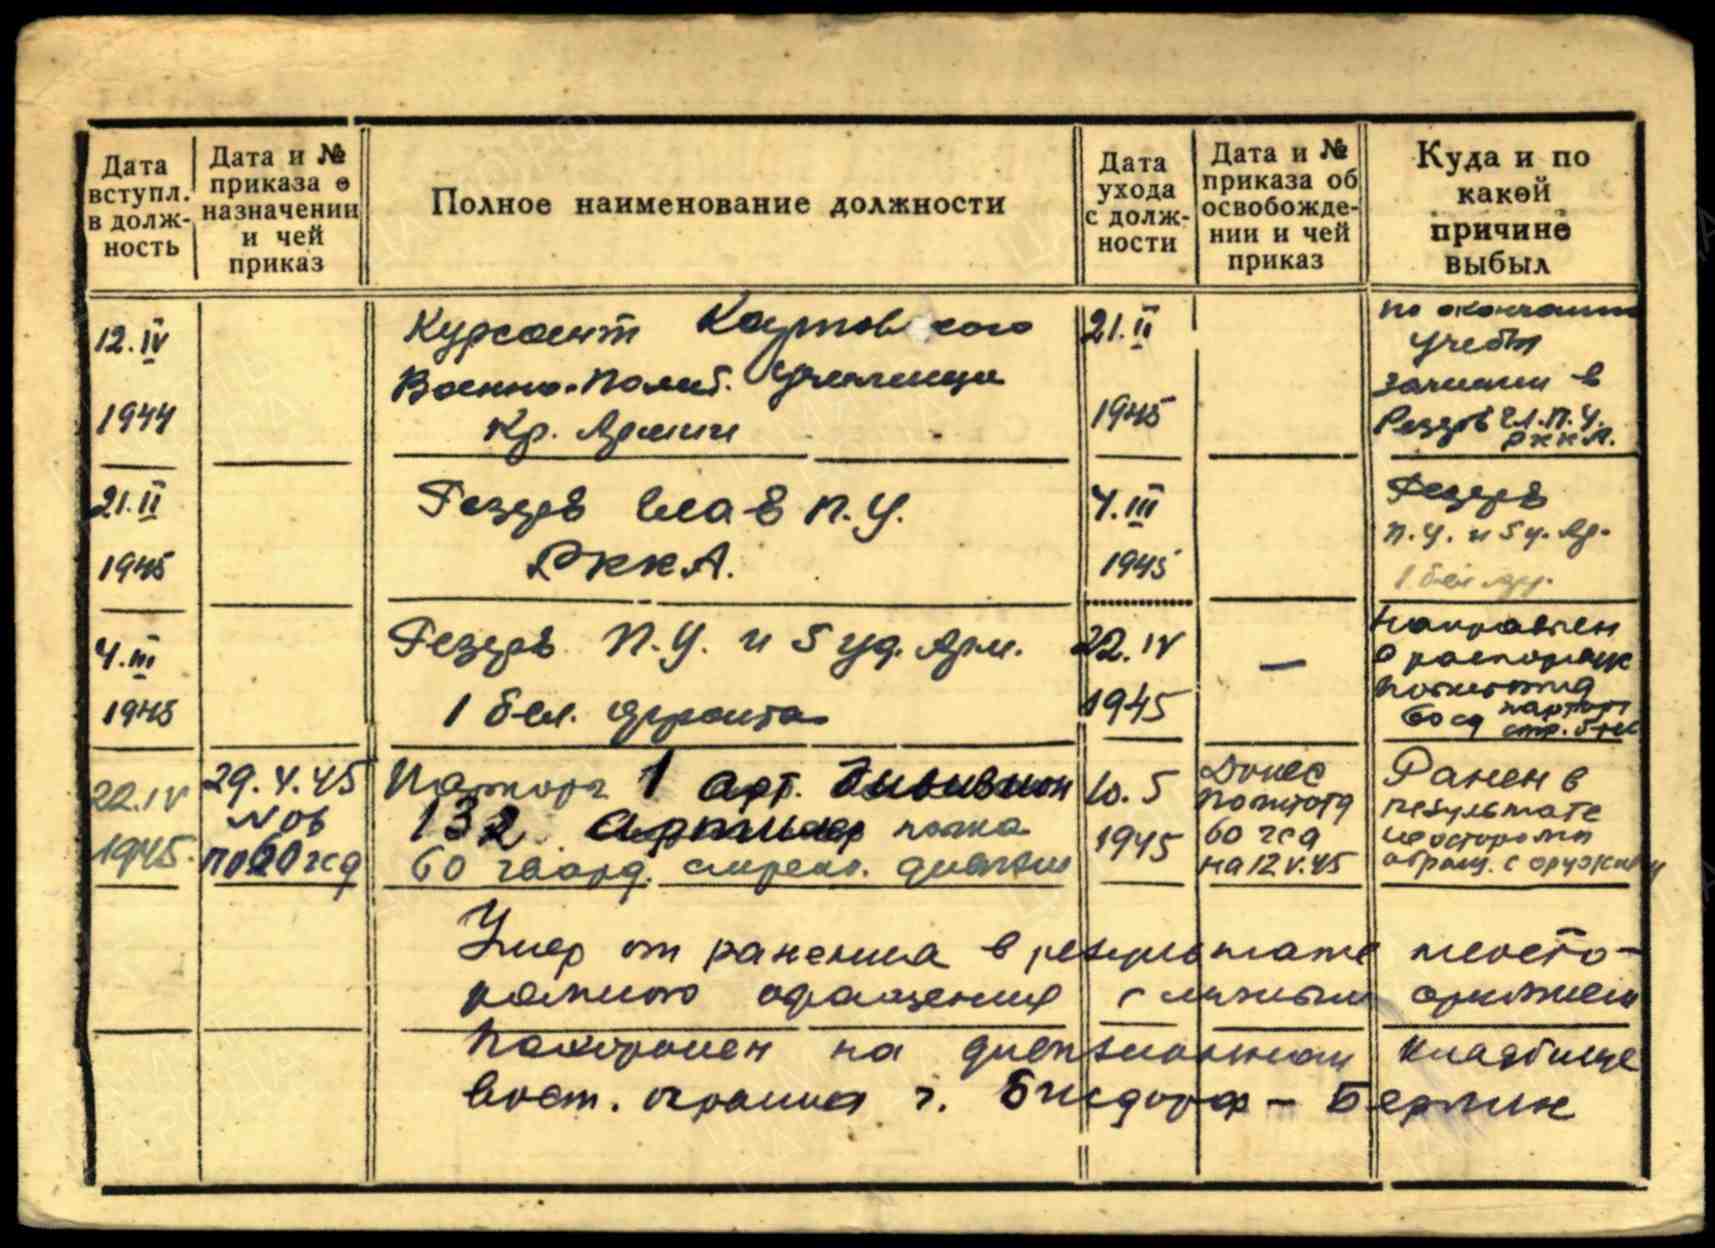 Дата
вступл.
в долж-
ность
Дата и №
приказа о
назначении
и чей
приказ
Полное наименование должности
Дата
ухода
с долж-
ности
Дата и №
приказа об
освобожде-
нии и чей
приказ
Куда и по
какой
причине
выбыл
12.IV
1944
Курсант
Военно-Полит. Училища
Кр. Армии
21.II
1945
по окончании
учебы
зачислен в
Резерв Гл.П.У.
РККА.
21.II
1945
Резерв Глав П.У.
РККА.
4.III
1945
Резерв
П.У. и 5 у. Ар.
1 бел фр.
4.III
1945
Резерв П.У. и 5 уд. Арм.
1 бел. фронта
22.IV
1945
—
Направлен
в распоряж
60 сд парторг
стр. б-на
22.IV
1945.
29.4.45
N 06
по 60 гсд
Парторг 1 арт. дивизион
132 артиллер полка
60 гвард. стрелк. дивизии
10.5
1945
Донес
политотд
60 гсд
на 12.V.45
Ранен в
результате
неосторожн
обращ. с оружием
Умер от ранения в результате неосто-
рожного обращения с личным оружием
Похоронен на дивизионном кладбище
вост. окраина г. Бисдорф - Берлин